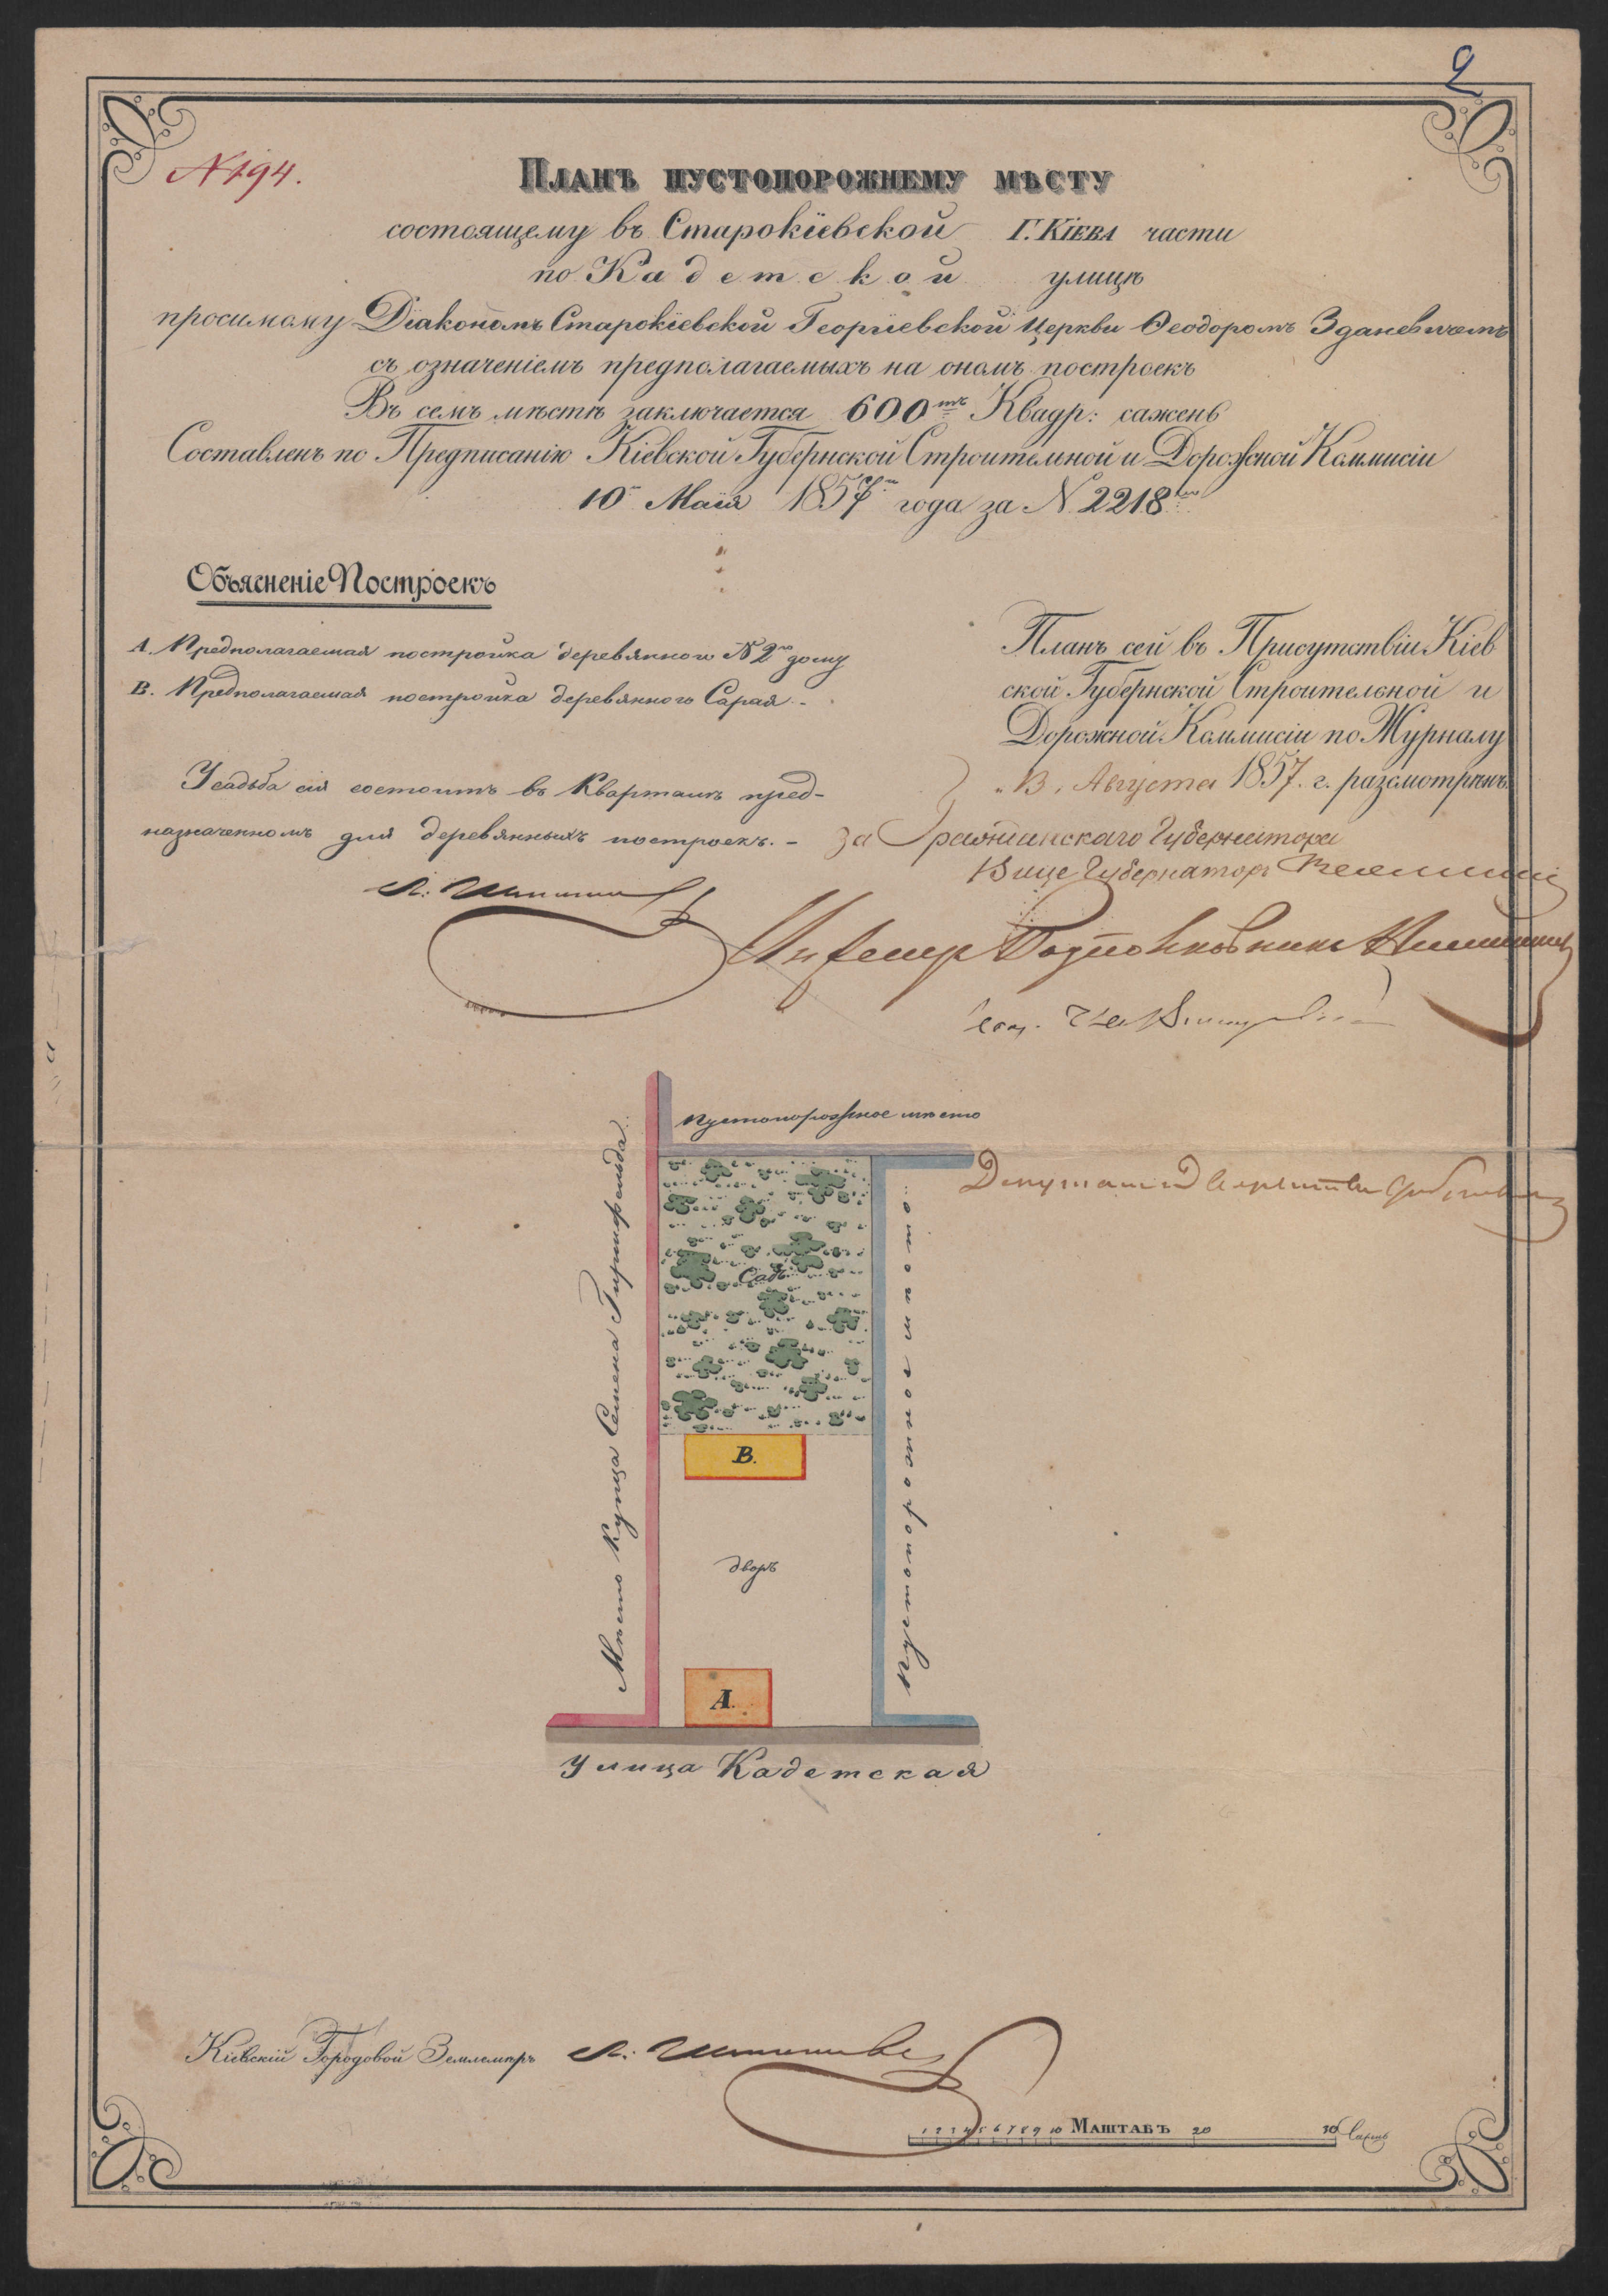 2
N 194.
Планъ пустопорожнему мѣсту
состоящему въ Старокіевской Г. Кіева части
по Кадетской улицѣ
просимому Діакономъ Старокіевской Георгіевской Церкви Ѳеодоромъ Зданевичемъ
съ означеніемъ предполагаемыхъ на ономъ построекъ
Въ семъ мѣстѣ заключается 600тъ Квадр: сажень
Составленъ по Предписанію Кіевской Губернской Строительной и Дорожной Коммисіи
10го Маія 1857го года за N. 2218мъ
Объясненіе Построекъ
А. Предполагаемая постройка деревянного N 2го дому
В. Предполагаемая постройка деревянного Сарая. -
Усадьба сія состоитъ въ Кварталѣ пред-
назначенномъ для деревянныхъ построекъ. -
Планъ сей въ Присутствіи Кіев
ской Губернской Строительной и
Дорожной Коммисіи по Журналу
"13, Августа 1857. г. разсмотрѣнъ.
За Гражданскаго Губернатора
Вице Губернаторъ
Инженеръ Подполковникъ
Пустопорожное мѣсто
Мѣсто Купца Семена Гиршфельда.
Садъ
Пустопорожное мѣсто.
В.
дворъ
А.
Улица Кадетская
Кіевскій Городовой Землемѣръ
1 2 3 4 5 6 7 8 9 10 Маштабъ 20 30 Сажѣ